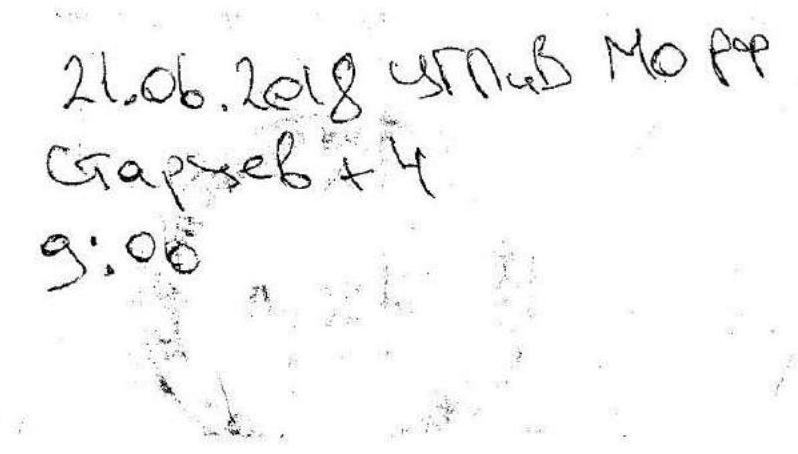 21.06.2018 УГПиВ МО РФ
Старцев + 4
9:00